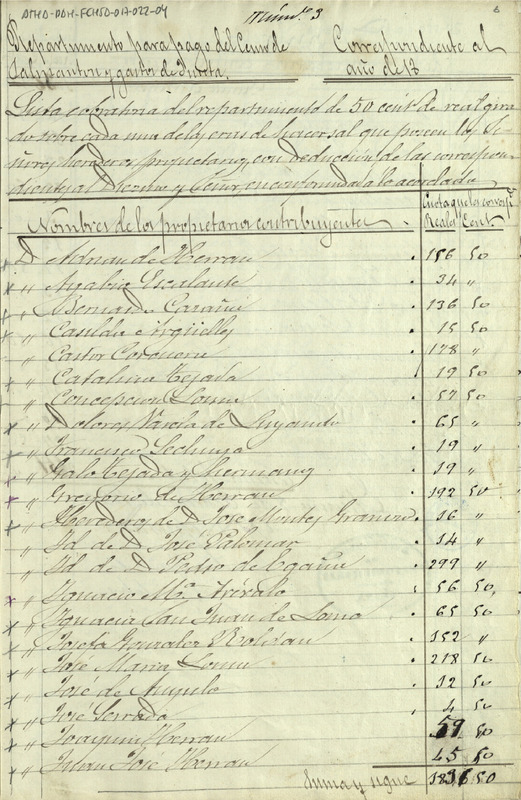 ATHD-DDH-FCHSD-DA-022-04
núm.o 3
6
Repartimiento para pago del Censo de
Salpianton y gastos de Junta.
Correspondiente al
año de 18
Lista cobratoria del repartimiento de 50 cent. de real gira
do sobre cada una de las eras de hacer sal que poseen los Se
ñores herederos propietarios, con deducción de las correspon
dientes al Dizmo y Señor, en conformidad a lo acordado
Nombres de los propietarios contribuyentes
Cuota que les corresp.
Reales Cent.
D. Adrian de Herran 156 50
" Escalante 34 "
" Bernardo 136 50
" Casilda Argüelles 15 50
" Castor 178 "
" Catalina Tejada 19 50
" Concepcion Loma 57 50
" Dolores Varcia de Luyando 65 "
" Francisco 19 "
" Galo Tejada y hermanos 19 "
" Gregorio de Herran 192 50
" Herederos de D. José Montes 16 "
" Id de D. José Palomar 14 "
" Id de D. Pedro de Egaña 299 "
" Ignacio M.a Arévalo 56 50
" Ignacia San Juan de Loma 65 50
" Josefa Gonzalez Roldan 152 "
" José Maria Loma 218 50
" José de 12 50
" José Serrada 4 50
" Joaquin Herran 59 50
" Julian José Herran 45 50
Suma y sigue 1836 50